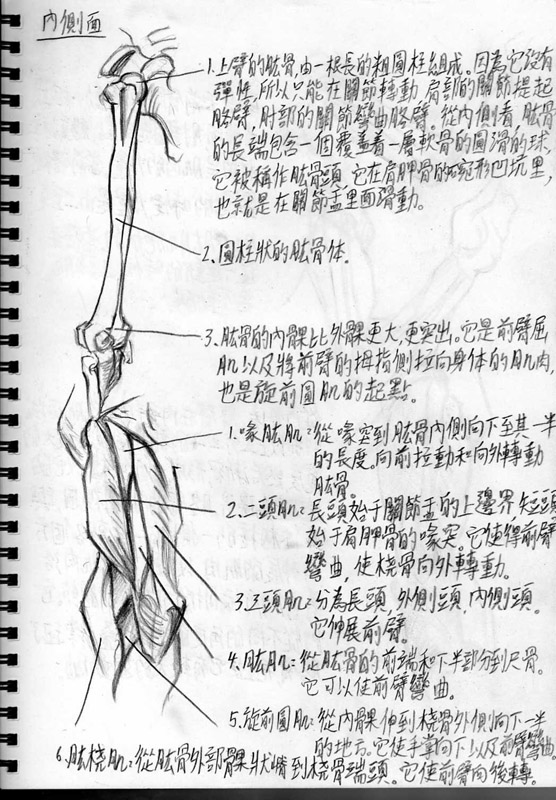 內側面
1.上臂的肱骨,由一根長的粗圓柱組成。因為它沒有
彈性,所以只能在關節轉動,肩部的關節提起
胳臂,肘部的關節彎曲胳臂。從內側看,肱骨
的長端包含一個覆蓋着一層軟骨的圓滑的球,
它被稱作肱骨頭,它在肩胛骨的碗形凹坑里,
也就是在關節盂里面滑動。
2.圓柱狀的肱骨体.
3.肱骨的內髁比外髁更大,更突出。它是前臂屈
肌以及將前臂的拇指側拉向身体的肌肉,
也是旋前圓肌的起點。
1.喙肱肌:從喙突到肱骨內側向下至其一半
的長度。向前拉動和向外轉動
肱骨。
2.二頭肌:長頭始于關節盂的上邊界,短頭
始于肩胛骨的喙突。它使得前臂
彎曲,使橈骨向外轉動。
3.三頭肌:分為長頭,外側頭,內側頭.
它伸展前臂。
4.肱肌:從肱骨的前端和下半部分到尺骨。
它可以使前臂彎曲。
5.旋前圓肌:從內髁伸到橈骨外側向下一半
的地方.它使手掌向下以及前臂彎曲.
6.肱橈肌:從肱骨外部髁狀嵴到橈骨端頭。它使前臂向後轉。